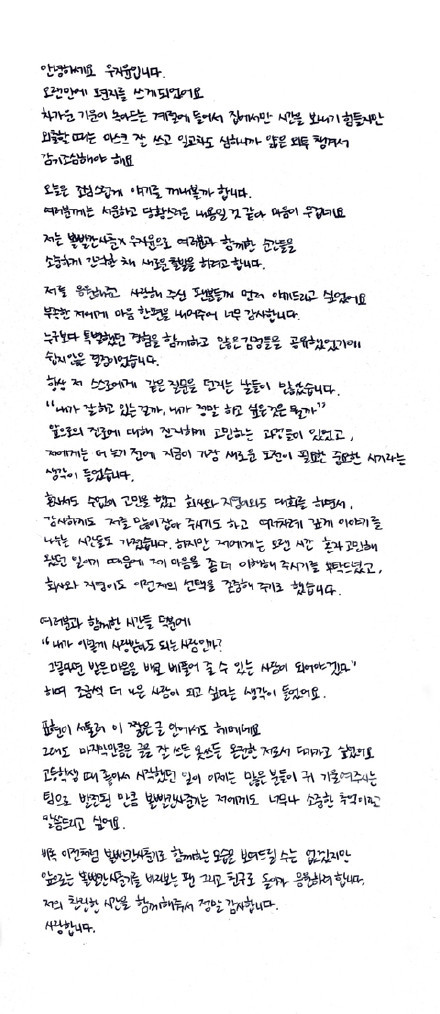 안녕하세요 우지윤입니다.
오랜만에 편지를 쓰게되었어요
차가운 기운이 높아드는 계절에 들어서 집에서만 시간을 보내기 힘들지만
외출할 때는 마스크 잘 쓰고 일교차도 심하니까 얇은 외투 챙겨서
감기조심해야 해요
오늘은 조심스럽게 얘기를 꺼내볼까 합니다.
여러분께는 서운하고 당황스러운 내용일 것 같아 마음이 무겁네요
저는 볼빨간사춘기 우지윤으로 여러분과 함께한 순간들을
소중하게 간직한 채 새로운 출발을 하려고 합니다.
저를 응원해주고 사랑해 주신 팬분들께 먼저 얘기드리고 싶었어요
부족한 저에게 마음 한편을 내어주어 너무 감사합니다.
누구보다 특별했던 경험을 함께하고 많은 감정들을 공유했었기에
쉽지않은 결정이었습니다.
항상 저 스스로에게 같은 질문을 던지는 날들이 많았습니다.
"내가 잘하고 있는걸까, 내가 정말 하고 싶은것은 뭘까"
앞으로의 진로에 대해 진지하게 고민하는 과정들이 있었고,
저에게는 더 늦기 전에 지금이 가장 새로운 도전이 필요한 중요한 시기라는
생각이 들었습니다.
혼자서도 수없이 고민을 했고 회사와 지영이와도 대화를 하면서,
감사하게도 저를 많이 잡아 주시기도 하고 여러차례 깊게 이야기를
나누는 시간들도 가졌습니다. 하지만 저에게는 오랜 시간 혼자 고민해
왔던 일이기 때문에 제 마음을 좀 더 이해해 주시기를 부탁드렸고,
회사와 지영이도 이런 저의 선택을 존중해 주기로 했습니다.
여러분과 함께한 시간들 덕분에
"내가 이렇게 사랑받아도 되는 사람인가?
그렇다면 받은 마음을 배로 베풀어 줄 수 있는 사람이 되어야겠다"
하며 조금씩 더 나은 사람이 되고 싶다는 생각이 들었어요.
표현이 서툴러 이 짧은 글 안에서도 헤매네요
그래도 마지막만큼은 글을 잘 쓰든 못쓰든 온전한 저로서 다가가고 싶었어요
고등학생 때 좋아서 시작했던 일이 이제는 많은 분들이 귀 기울여주시는
팀으로 발전된 만큼 볼빨간사춘기는 저에게도 너무나 소중한 추억이라고
말씀드리고 싶어요.
비록 이전처럼 볼빨간사춘기로 함께하는 모습은 보여드릴 수는 없겠지만
앞으로는 볼빨간사춘기를 바라보는 팬 그리고 친구로 돌아가 응원하려 합니다.
저의 찬란한 시간을 함께해줘서 정말 감사합니다.
사랑합니다.